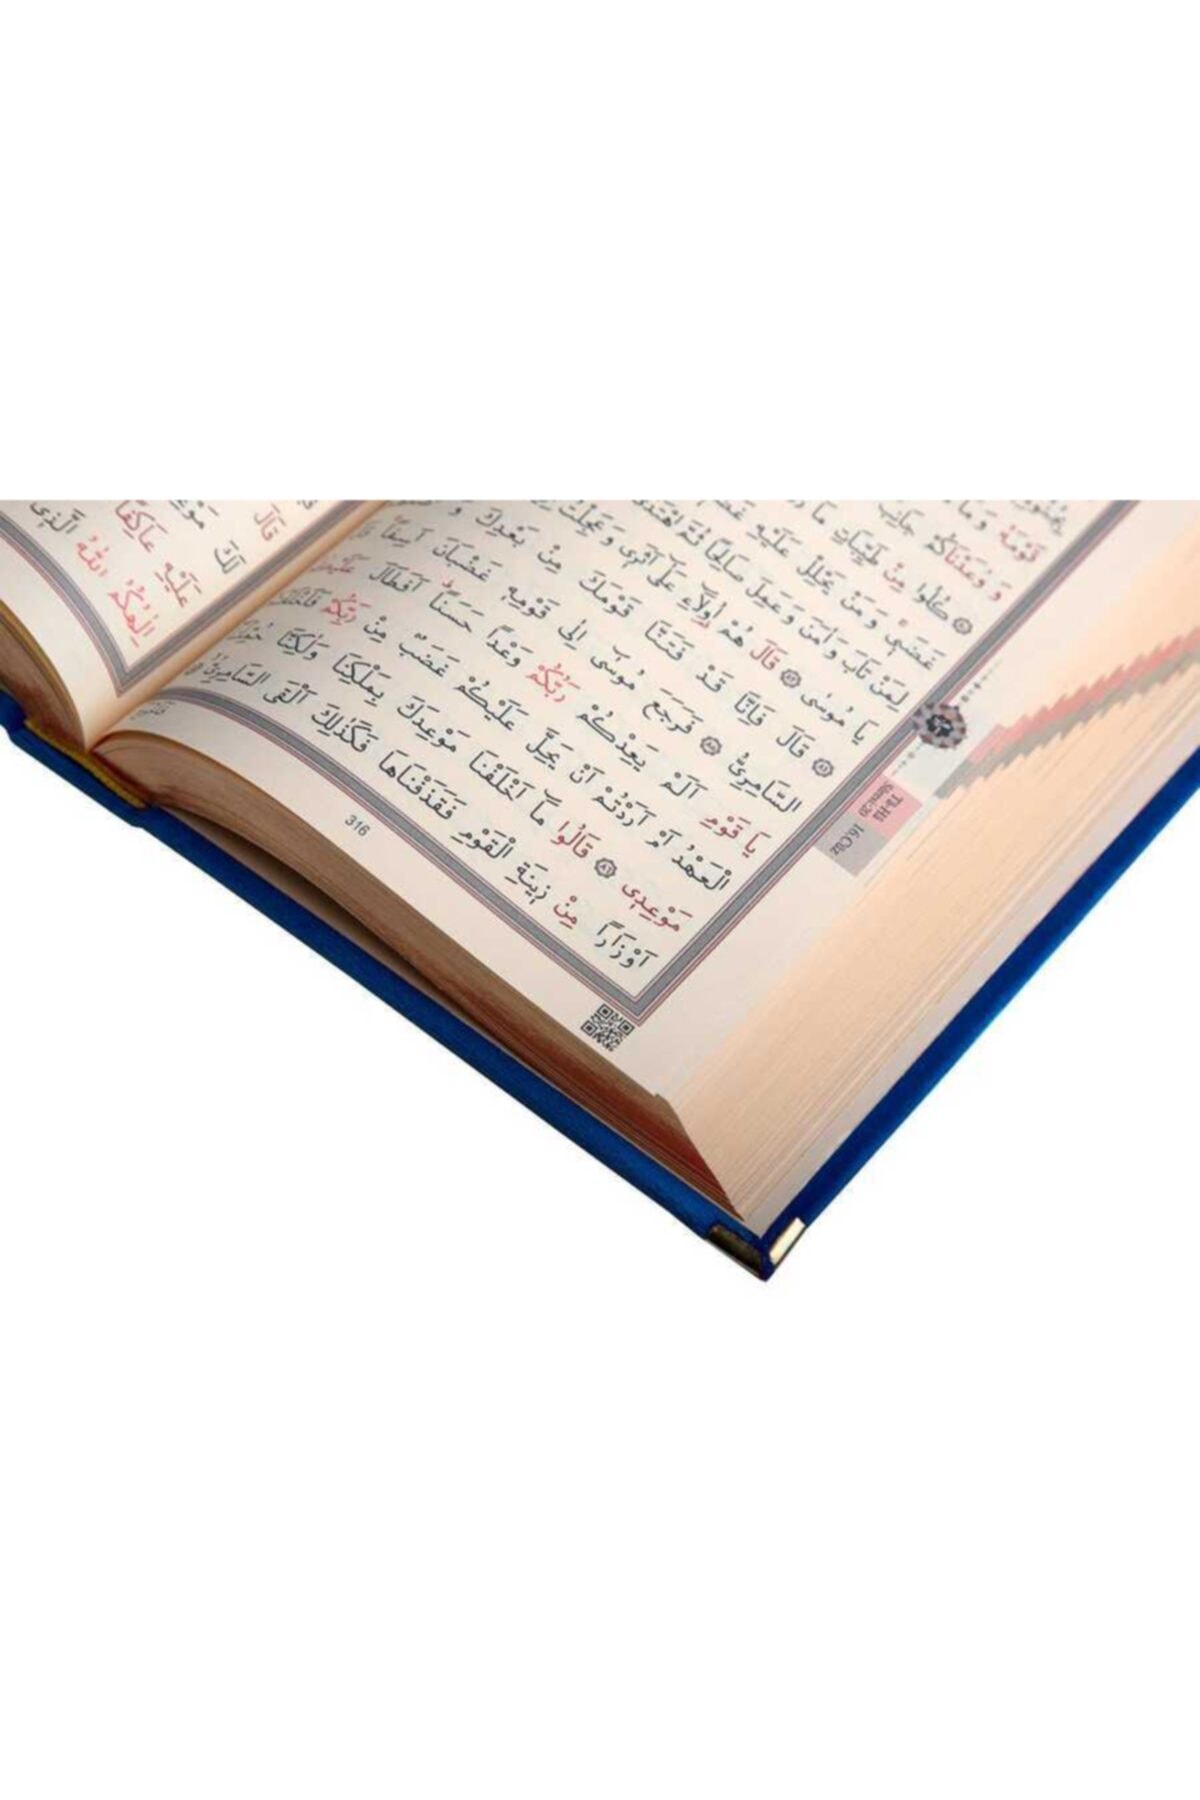 قَوْمَهُ وَمَا
وَوَعَدْنَاكُمْ جَانِبَ
كُلُوا مِنْ طَيِّبَاتِ مَا
غَضَبِي وَمَنْ يَحْلِلْ عَلَيْهِ
لِمَنْ تَابَ وَاٰمَنَ وَعَمِلَ صَالِحًا ثُمَّ اهْتَدٰى
يَا مُوسٰى قَالَ هُمْ اُولَٓاءِ عَلٰٓى اَثَرِي وَعَجِلْتُ
قَالَ فَاِنَّا قَدْ فَتَنَّا قَوْمَكَ مِنْ بَعْدِكَ
السَّامِرِيُّ فَرَجَعَ مُوسٰٓى اِلٰى قَوْمِهِ غَضْبَانَ اَسِفًا
يَا قَوْمِ اَلَمْ يَعِدْكُمْ رَبُّكُمْ وَعْدًا حَسَنًا اَفَطَالَ عَلَيْكُمُ
الْعَهْدُ اَمْ اَرَدْتُمْ اَنْ يَحِلَّ عَلَيْكُمْ غَضَبٌ مِنْ رَبِّكُمْ
مَوْعِدِي قَالُوا مَٓا اَخْلَفْنَا مَوْعِدَكَ بِمَلْكِنَا وَلٰكِنَّا
اَوْزَارًا مِنْ زِينَةِ الْقَوْمِ فَقَذَفْنَاهَا فَكَذٰلِكَ اَلْقَى السَّامِرِيُّ
316
Tâ-Hâ
Sûresi-20
16.Cüz
قَالَ
لَكَ
عَلَيْهِ عَاكِفًا
اِلٰهُكُمُ اللّٰهُ الَّذِي